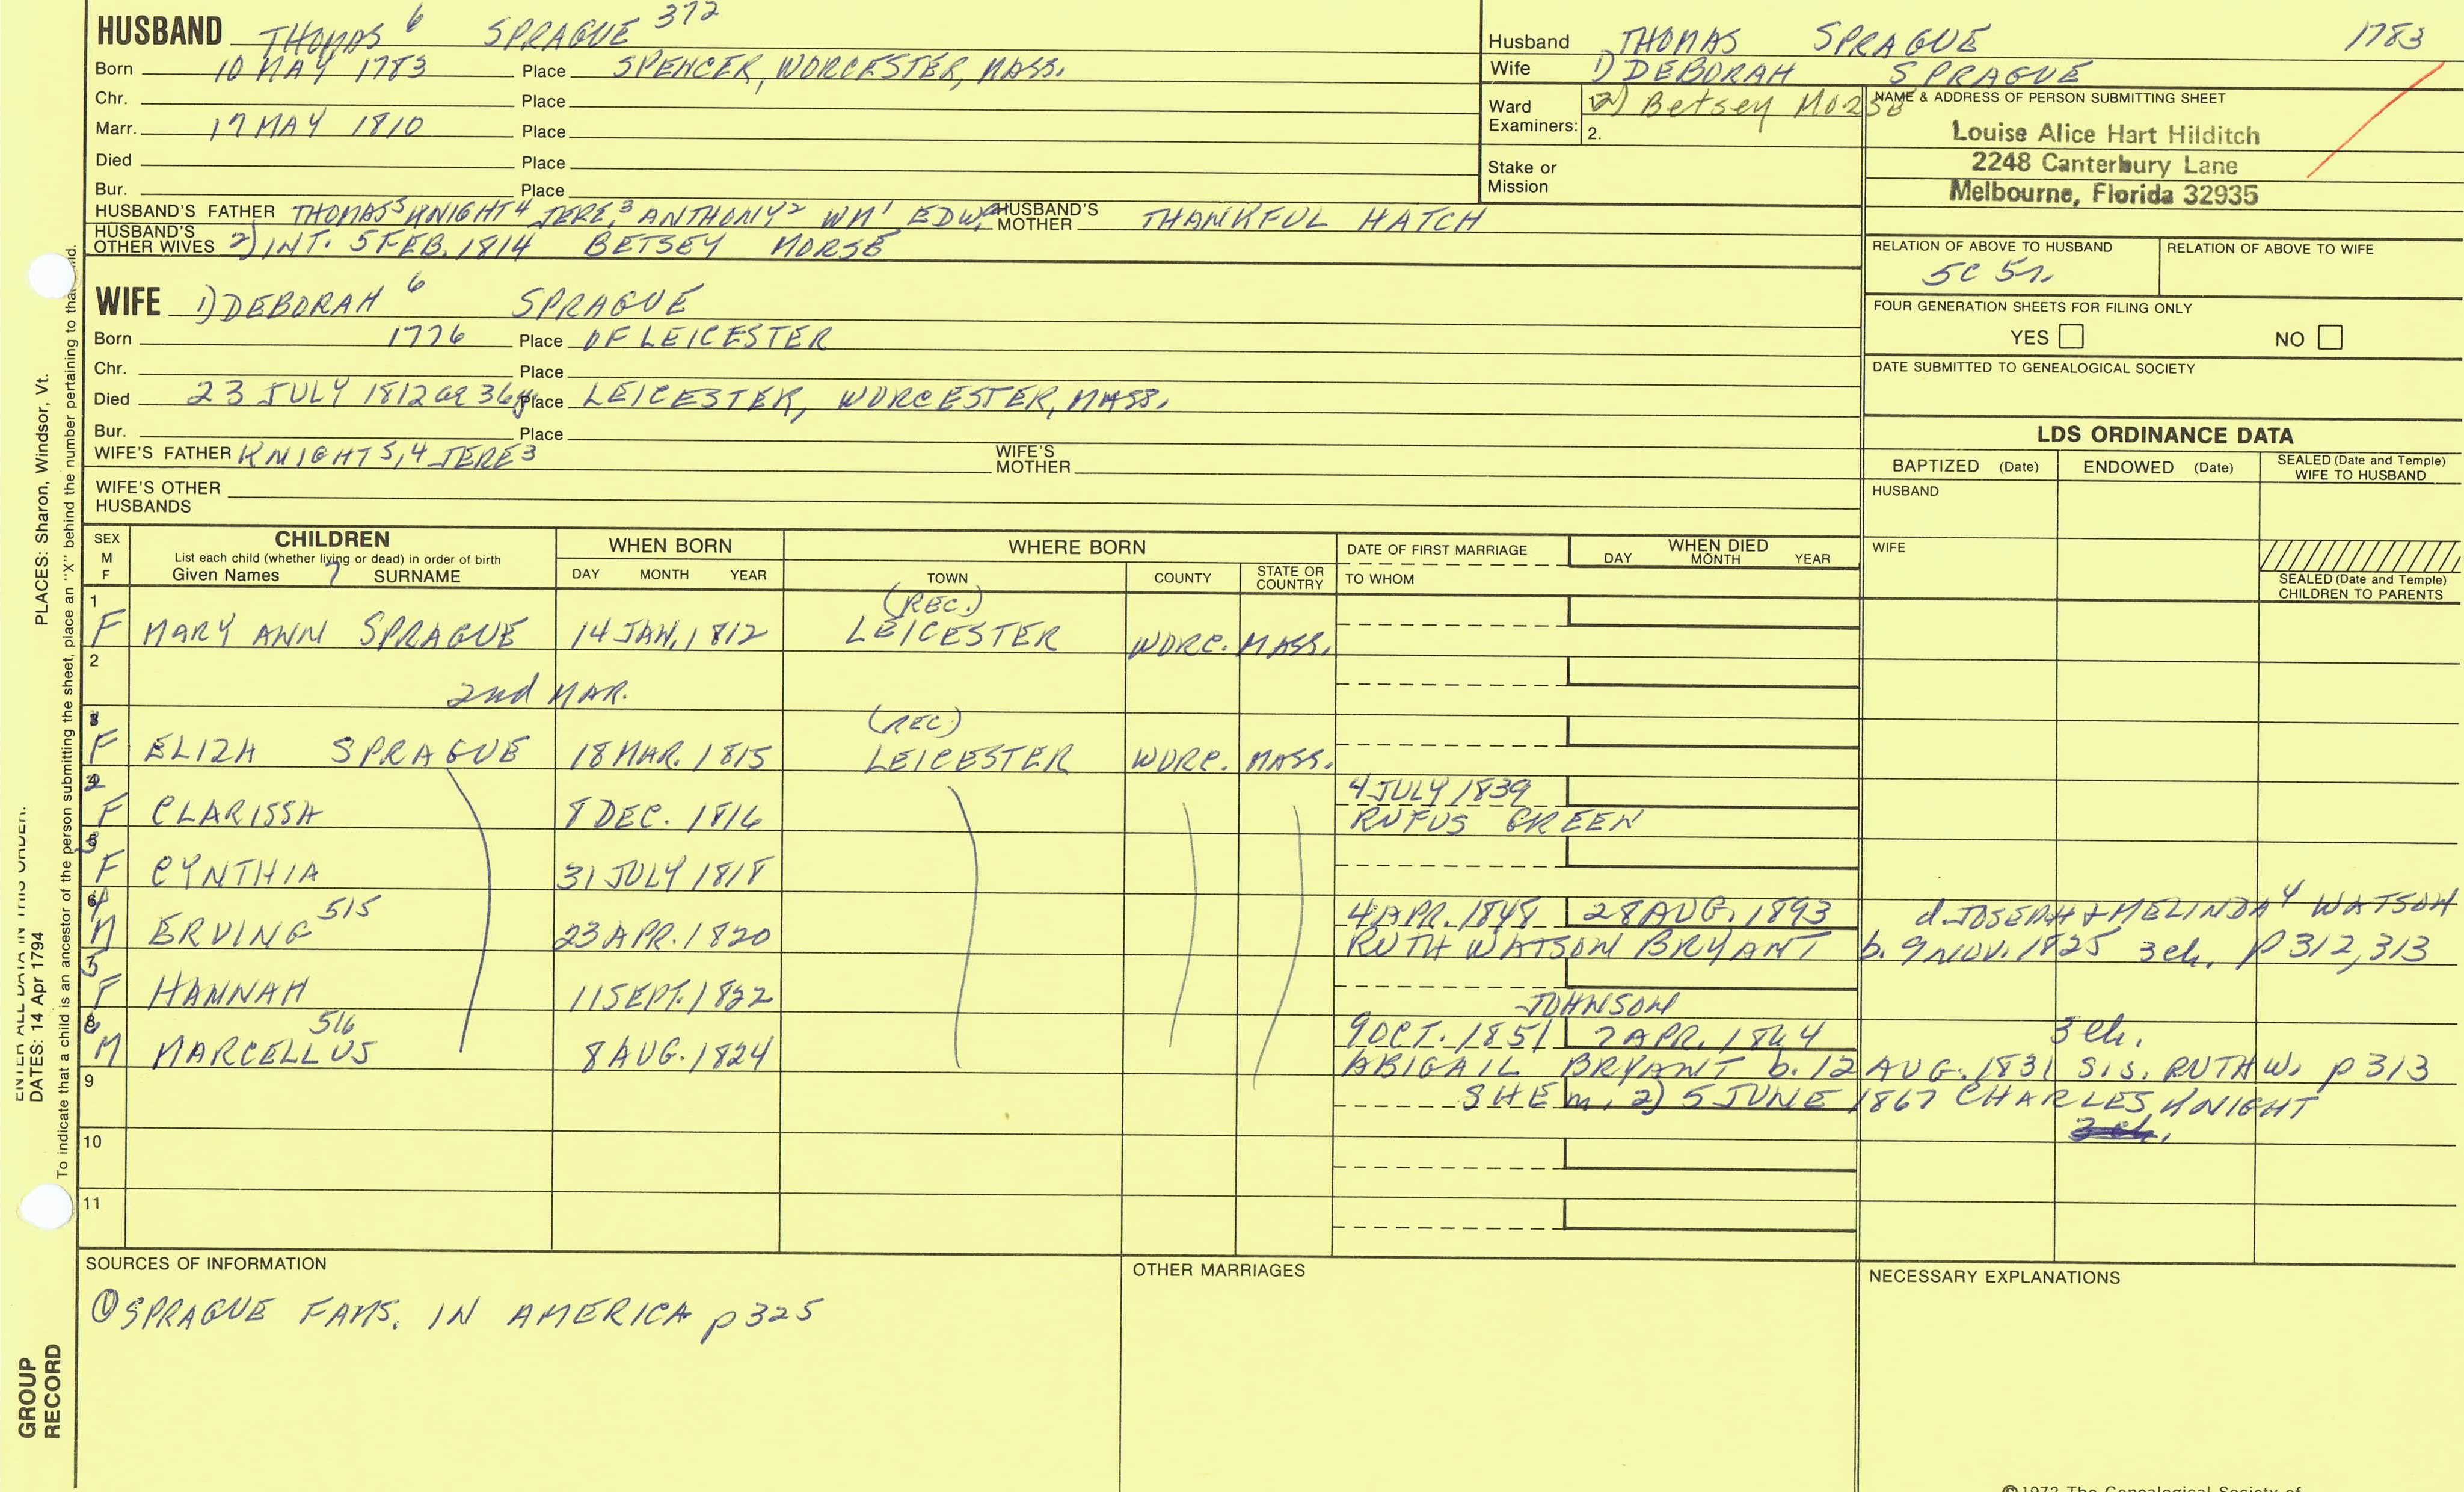 HUSBAND THOMAS 6 SPRAGUE 372
Born 10 MAY 1783 Place SPENCER, WORCESTER, MASS.
Chr. Place
Marr. 17 MAY 1810 Place
Died Place
Bur. Place
HUSBAND'S FATHER THOMAS5 KNIGHT4 JERE.3 ANTHONY2 WM1 EDW. HUSBAND'S MOTHER THANKFUL HATCH
HUSBAND'S OTHER WIVES 2) INT. 5 FEB. 1814 BETSEY MORSE
Husband THOMAS SPRAGUE 1783
Wife 1) DEBORAH SPRAGUE
Ward Examiners: 1. 2) Betsey Morse
2.
Stake or Mission
NAME & ADDRESS OF PERSON SUBMITTING SHEET
Louise Alice Hart Hilditch
2248 Canterbury Lane
Melbourne, Florida 32935
RELATION OF ABOVE TO HUSBAND RELATION OF ABOVE TO WIFE
5C 5r.
FOUR GENERATION SHEETS FOR FILING ONLY
YES NO
DATE SUBMITTED TO GENEALOGICAL SOCIETY
WIFE 1) DEBORAH 6 SPRAGUE
Born 1776 Place OF LEICESTER
Chr. Place
Died 23 JULY 1812 ae 36y Place LEICESTER, WORCESTER, MASS.
Bur. Place
WIFE'S FATHER KNIGHT 5,4 JERE3 WIFE'S MOTHER
WIFE'S OTHER HUSBANDS
LDS ORDINANCE DATA
BAPTIZED (Date) ENDOWED (Date) SEALED (Date and Temple) WIFE TO HUSBAND
HUSBAND
WIFE
SEALED (Date and Temple) CHILDREN TO PARENTS
SEX M F CHILDREN WHEN BORN WHERE BORN DATE OF FIRST MARRIAGE WHEN DIED
List each child (whether living or dead) in order of birth
Given Names 7 SURNAME DAY MONTH YEAR TOWN COUNTY STATE OR COUNTRY TO WHOM DAY MONTH YEAR
1 F MARY ANN SPRAGUE 14 JAN. 1812 (REC.) LEICESTER WORC. MASS.
2 2nd MAR.
F ELIZA SPRAGUE 18 MAR. 1815 (REC) LEICESTER WORC. MASS.
F CLARISSA 8 DEC. 1816 4 JULY 1839
RUFUS GREEN
F CYNTHIA 31 JULY 1818
M ERVING 515 23 APR. 1820 4 APR. 1848 28 AUG. 1893 d. JOSEPH & MELINDA WATSON
RUTH WATSON BRYANT b. 9 NOV. 1825 3 ch. p 312, 313
F HANNAH 11 SEPT. 1822
JOHNSON
M MARCELLUS 516 8 AUG. 1824 9 OCT. 1851 7 APR. 1864 3 ch.
ABIGAIL BRYANT b. 12 AUG. 1831 SIS. RUTH W. p 313
9 SHE m. 2) 5 JUNE 1867 CHARLES KNIGHT
10
11
SOURCES OF INFORMATION
① SPRAGUE FAMS. IN AMERICA p 325
OTHER MARRIAGES
NECESSARY EXPLANATIONS
PLACES: Sharon, Windsor, Vt.
DATES: 14 Apr 1794
ENTER ALL DATA IN THIS ORDER:
To indicate that a child is an ancestor of the person submitting the sheet, place an "X" behind the number pertaining to that child.
GROUP RECORD
©1972 The Genealogical Society of